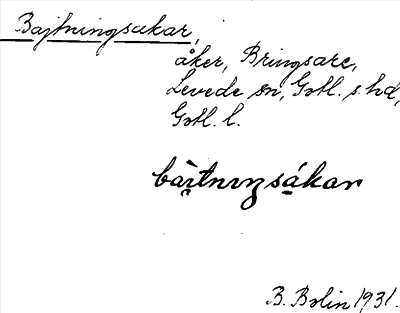 Bajtningsåkar,
åker, Bringsarc,
Levede sn, Gotl. s. hd,
Gotl. l.
bàı̯tnıŋsákar
B. Bolin 1931.